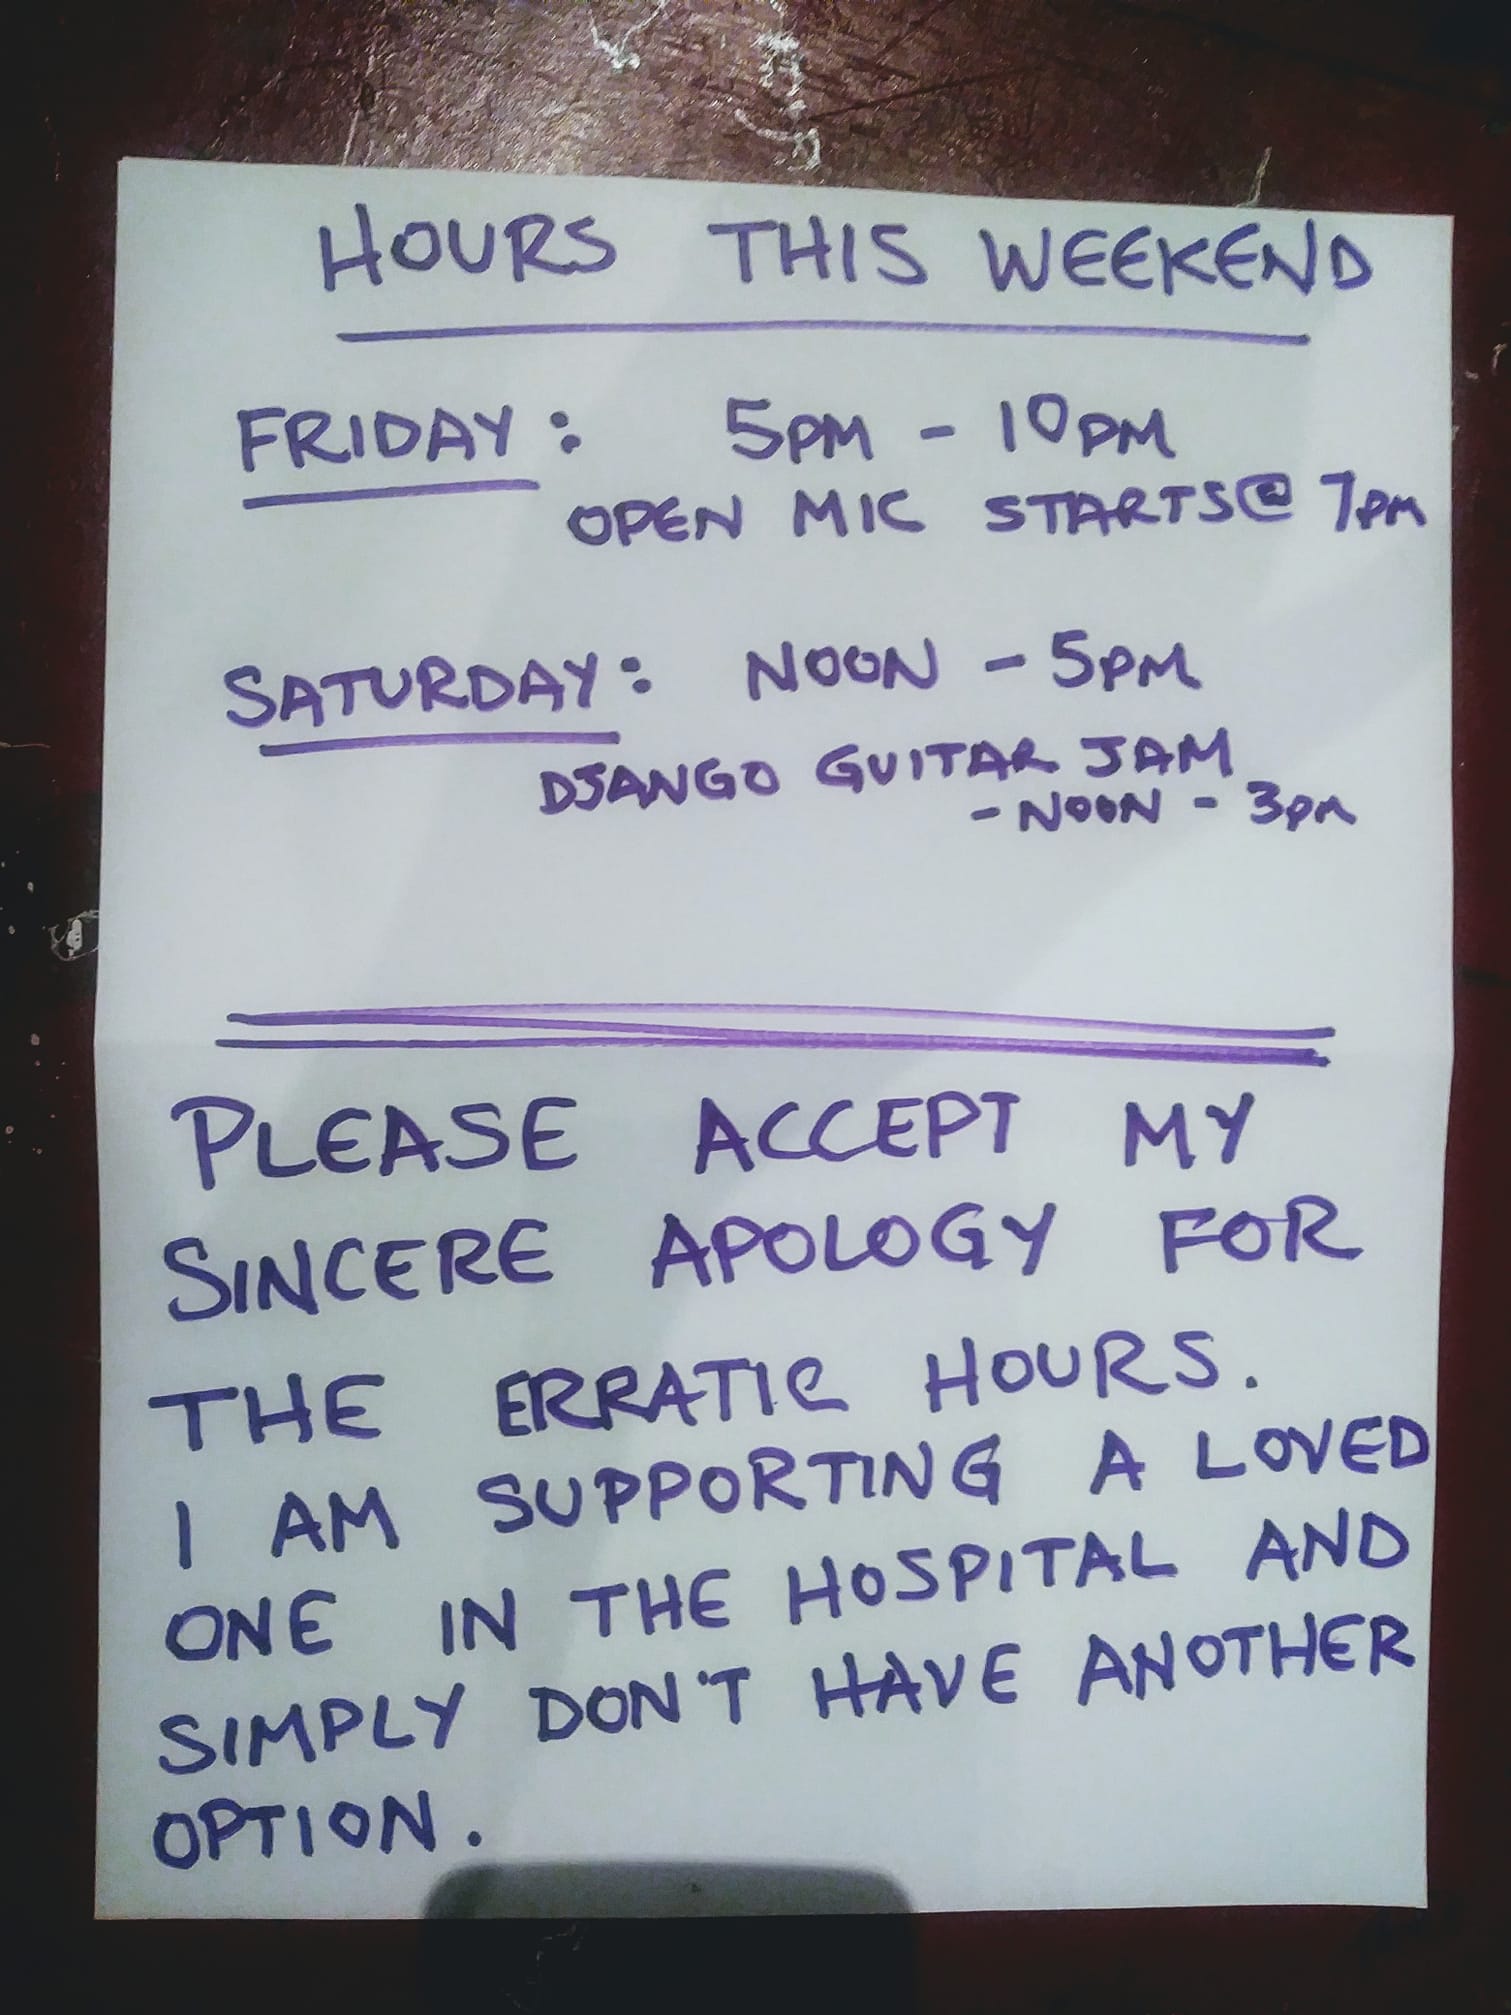 HOURS THIS WEEKEND
FRIDAY: 5PM - 10PM
OPEN MIC STARTS@ 7PM
SATURDAY: NOON - 5PM
DJANGO GUITAR JAM
- NOON - 3PM
PLEASE ACCEPT MY
SINCERE APOLOGY FOR
THE ERRATIC HOURS.
I AM SUPPORTING A LOVED
ONE IN THE HOSPITAL AND
SIMPLY DON'T HAVE ANOTHER
OPTION.